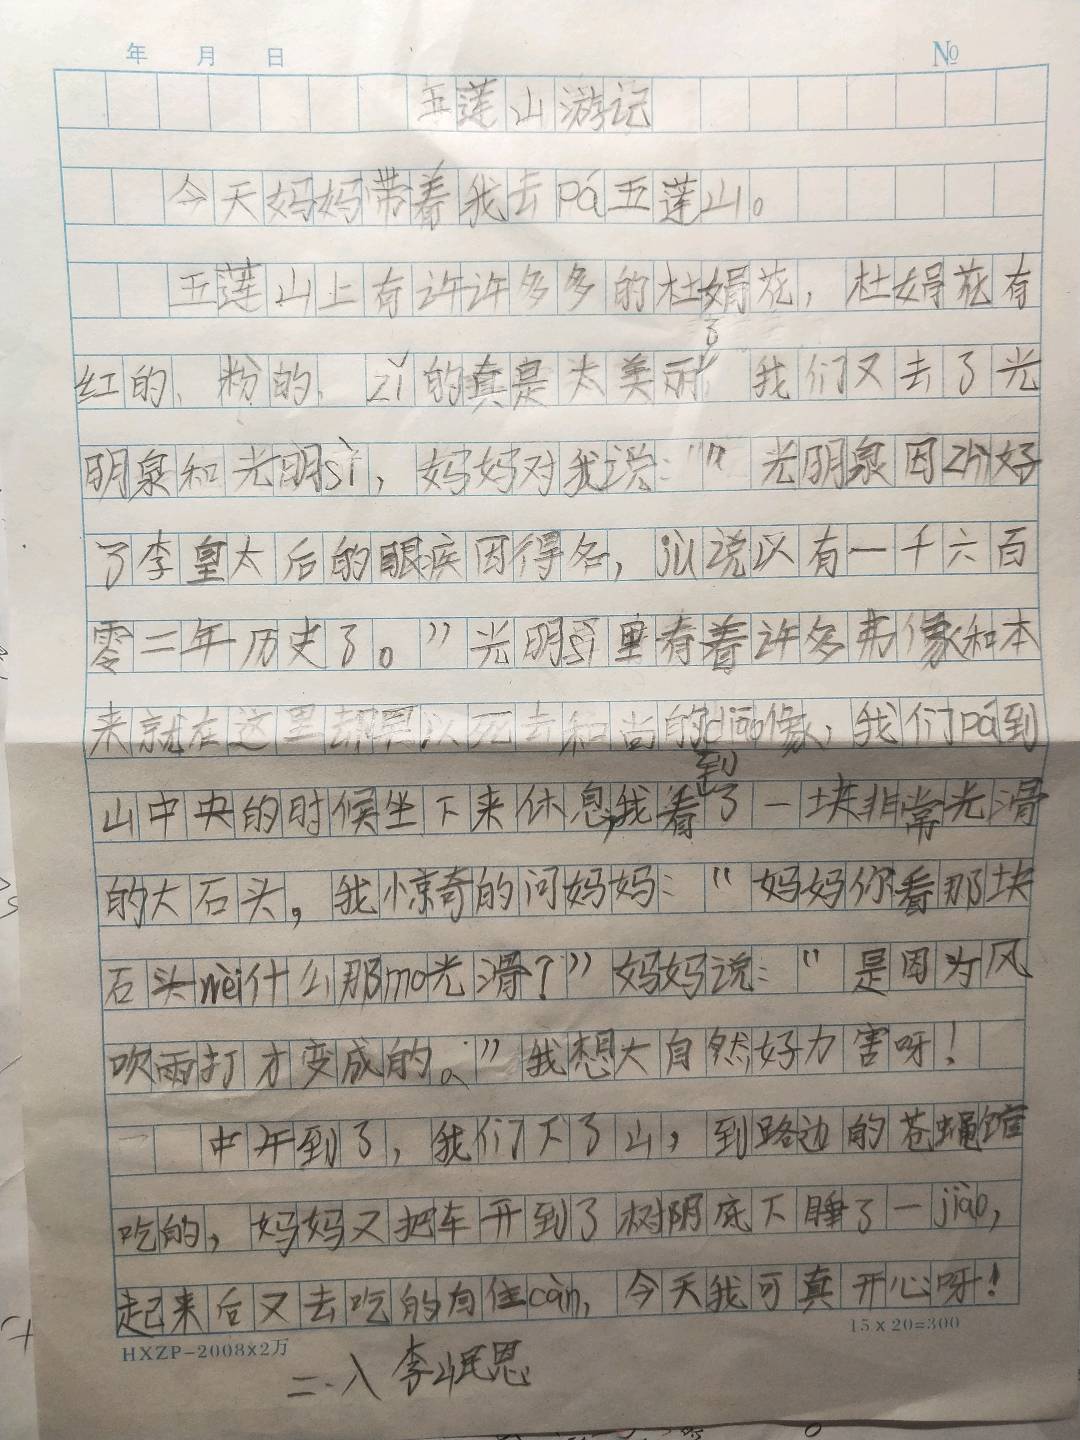 年 月 日 №
五莲山游记
今天妈妈带着我去pá五莲山。
五莲山上有许许多多的杜娟花，杜娟花有
红的、粉的、zǐ的真是太美丽了，我们又去了光
明泉和光明sì，妈妈对我说：“光明泉因zhì好
了李皇太后的眼疾因得名，jù说以有一千六百
零二年历史了。”光明sì里有着许多弗像和本
来就在这里却以死去和尚的diāo像，我们pá到
山中央的时候坐下来休息，我看到了一块非常光滑
的大石头，我惊奇的问妈妈：“妈妈你看那块
石头wèi什么那mo光滑？”妈妈说：“是因为风
吹雨打才变成的。”我想大自然好力害呀！
中午到了，我们下了山，到路边的苍蝇馆
吃的，妈妈又把车开到了树阴底下睡了一jiào，
起来后又去吃的自住cān，今天我可真开心呀！
HXZP-2008×2万 15×20=300
二、入 李岷恩